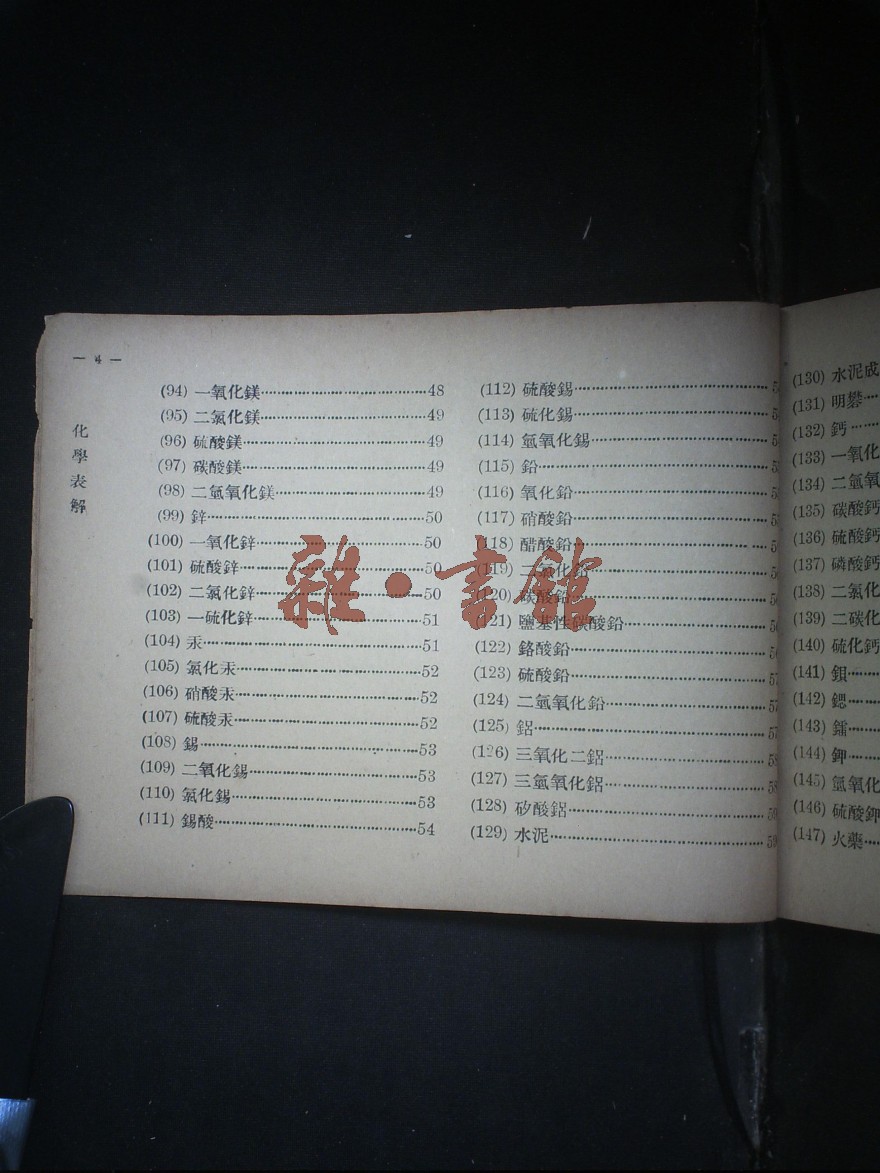 — 4 —
化學表解
(94) 一氧化鎂 48
(95) 二氯化鎂 49
(96) 硫酸鎂 49
(97) 碳酸鎂 49
(98) 二氫氧化鎂 49
(99) 鋅 50
(100) 一氧化鋅 50
(101) 硫酸鋅 50
(102) 二氯化鋅 50
(103) 一硫化鋅 51
(104) 汞 51
(105) 氯化汞 52
(106) 硝酸汞 52
(107) 硫酸汞 52
(108) 錫 53
(109) 二氧化錫 53
(110) 氯化錫 53
(111) 錫酸 54
(112) 硫酸錫
(113) 硫化錫
(114) 氫氧化錫
(115) 鉛
(116) 氧化鉛
(117) 硝酸鉛
(118) 醋酸鉛
(119) 二氯化鉛
(120) 碳酸鉛
(121) 鹽基性碳酸鉛
(122) 鉻酸鉛
(123) 硫酸鉛 57
(124) 二氫氧化鉛 57
(125) 鋁 57
(126) 三氧化二鋁 58
(127) 三氫氧化鋁 58
(128) 矽酸鋁 59
(129) 水泥 59
(130) 水泥成
(131) 明礬
(132) 鈣
(133) 一氧化
(134) 二氫氧
(135) 碳酸鈣
(136) 硫酸鈣
(137) 磷酸鈣
(138) 二氯化
(139) 二碳化
(140) 硫化鈣
(141) 鋇
(142) 鍶
(143) 鐳
(144) 鉀
(145) 氫氧化
(146) 硫酸鉀
(147) 火藥
雜·書館